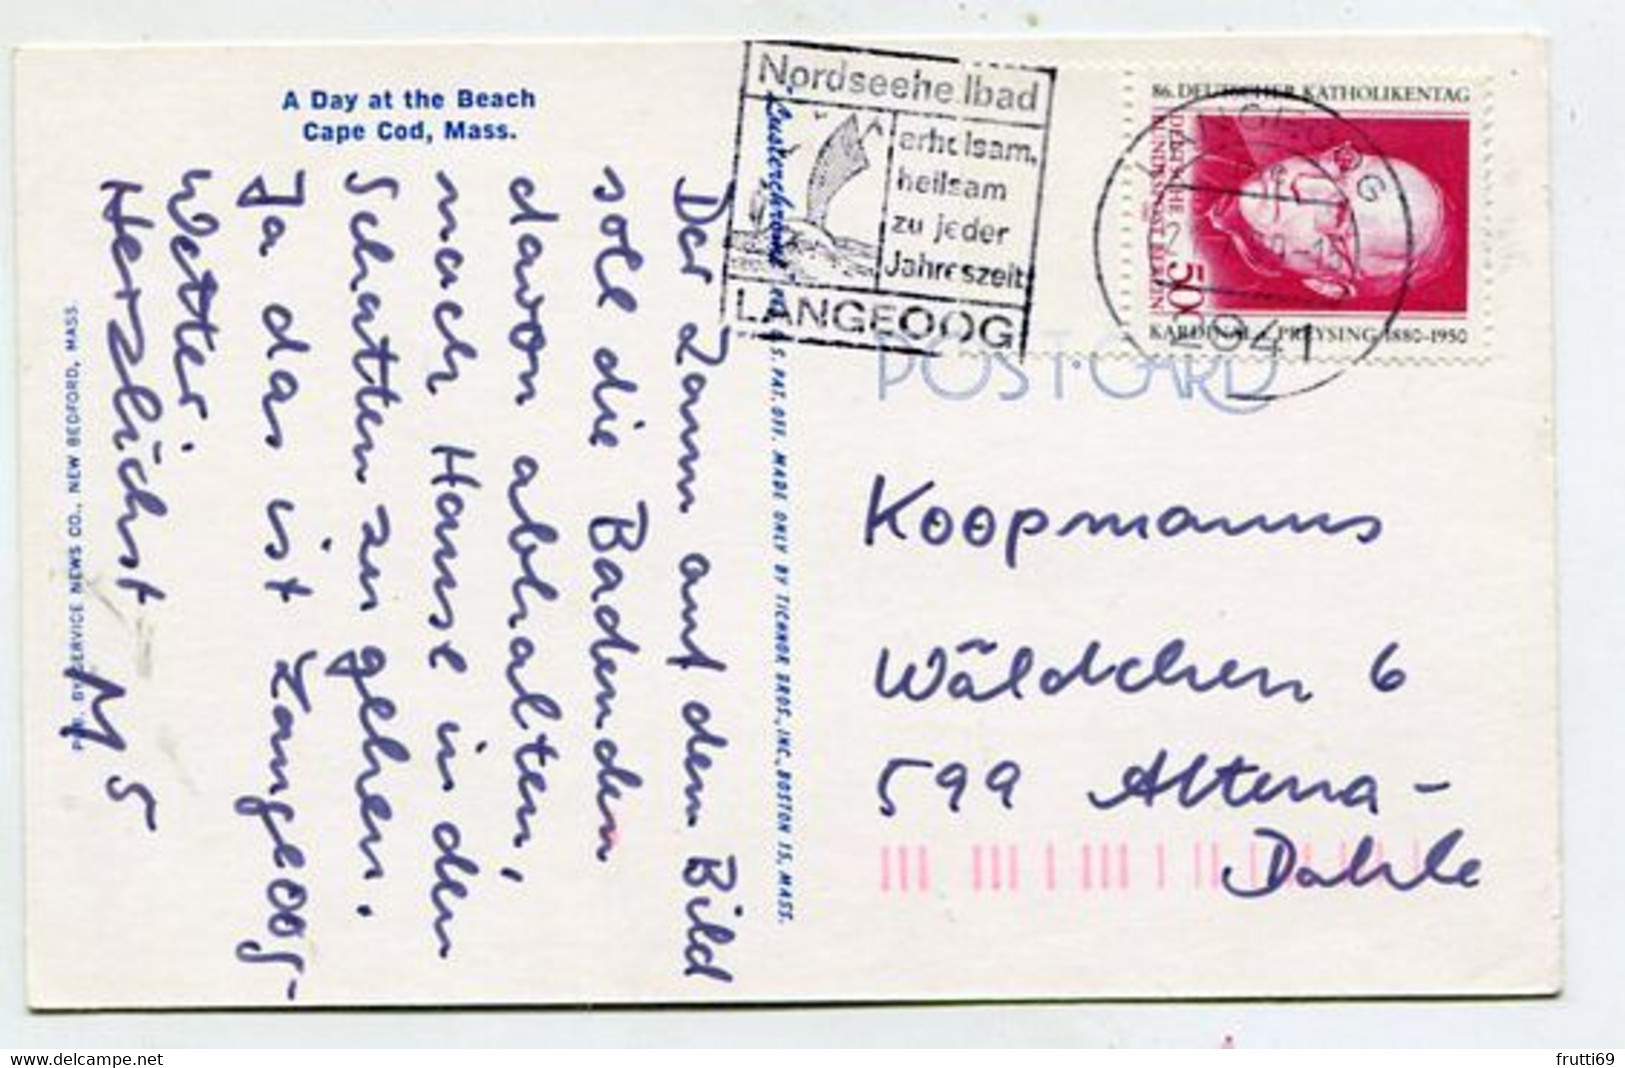 A Day at the Beach
Cape Cod, Mass.
Der Zaun auf dem Bild
soll die Badenden
davon abhalten,
nach Hause in den
Schatten zu gehen.
Ja das ist Langeoog-
Wetter.
Herzlichst
PUB. BY SERVICE NEWS CO., NEW BEDFORD, MASS.
Lusterchrome REG. U.S. PAT. OFF. MADE ONLY BY TICHNOR BROS., INC., BOSTON 15, MASS.
Nordseeheilbad
erholsam,
heilsam
zu jeder
Jahreszeit
LANGEOOG
86. DEUTSCHER KATHOLIKENTAG
DEUTSCHE
BUNDESPOST BERLIN
50
KARDINAL v. PREYSING 1880-1950
LANGEOOG
2941
POST CARD
Koopmanns
Wäldchen 6
599 Altena-
Dahle
www.delcampe.net
frutti69